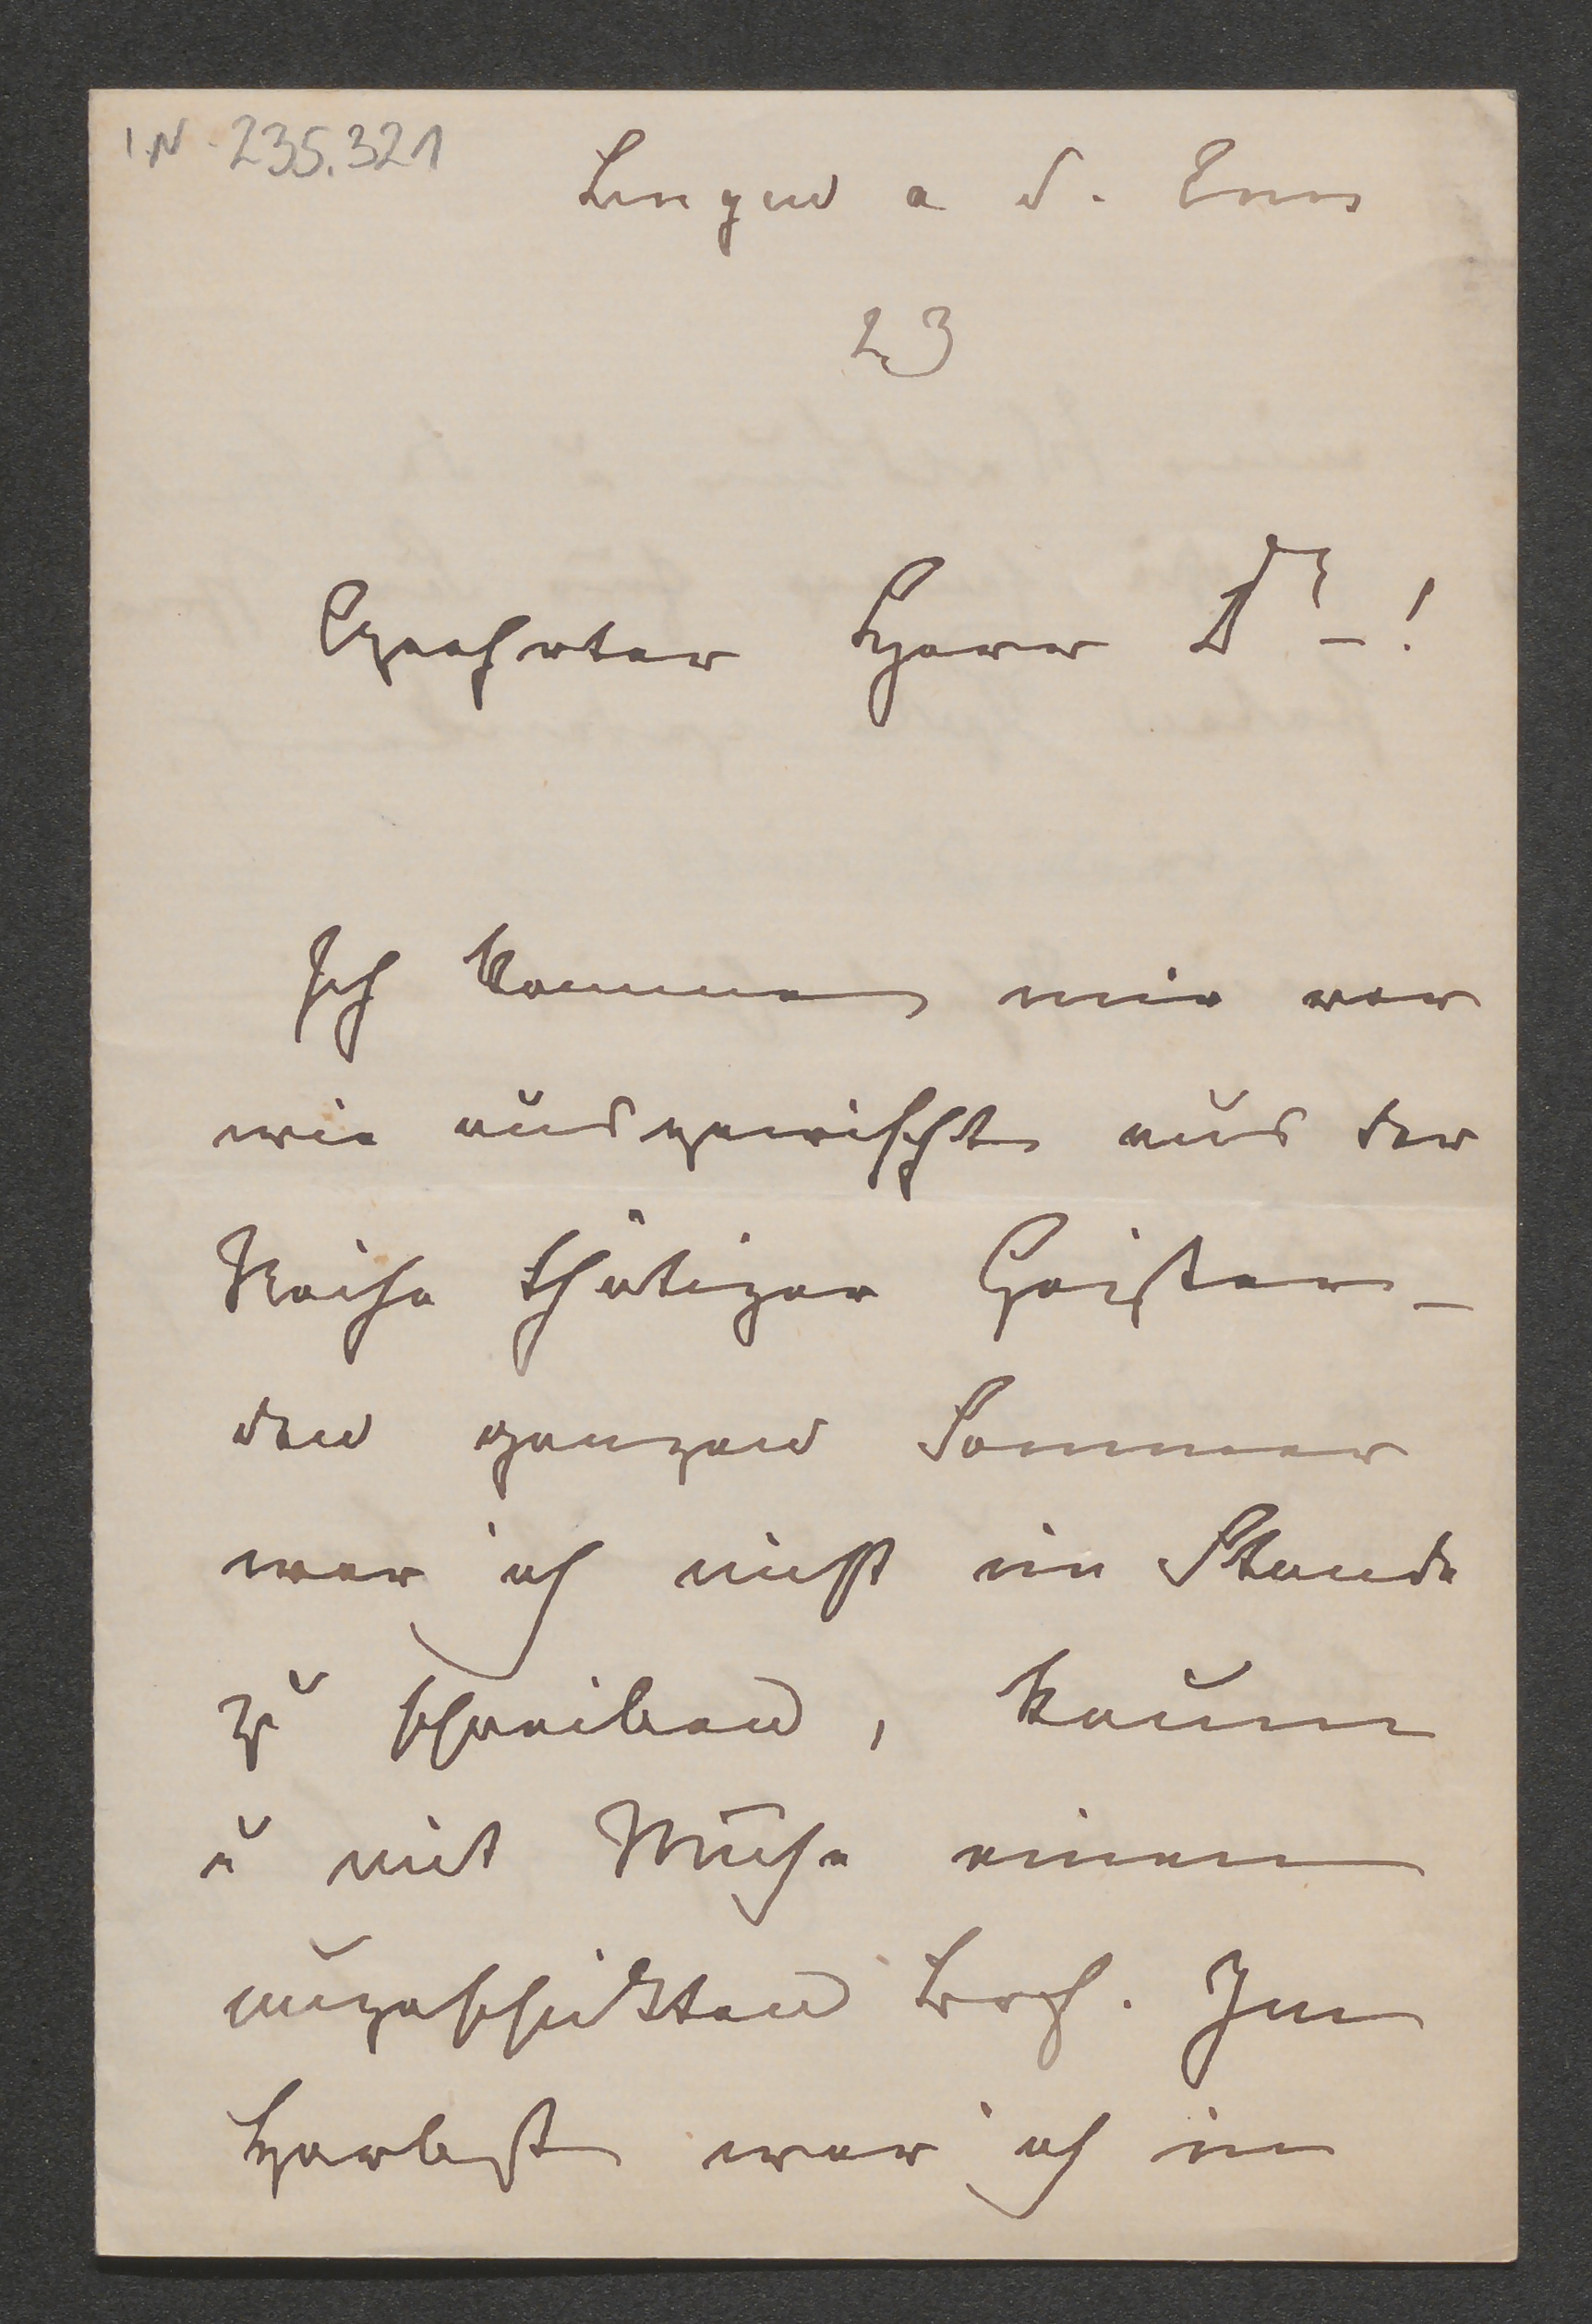 I.N. 235.321
a d. Enns
23
Geehrter Herr Dr.!
Ich komme mir vor
wie ausgewischt aus der
Reihe thätiger Geister –
den ganzen Sommer
war ich nicht im Stande
zu schreiben, kaum
u mit Mühe einen
ungeschickten Im
Herbst war ich in